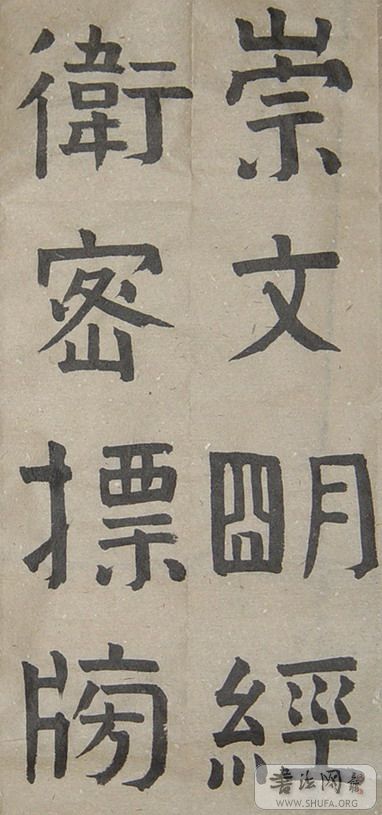 崇文朙經
衛密摽牓
书法网
WWW.SHUFA.ORG